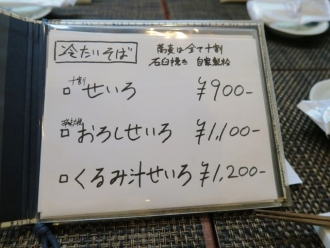 冷たいそば
蕎麦は全て十割
石臼挽き 自家製粉
十割
せいろ ¥900-
おろしせいろ ¥1,100-
くるみ汁せいろ ¥1,200-